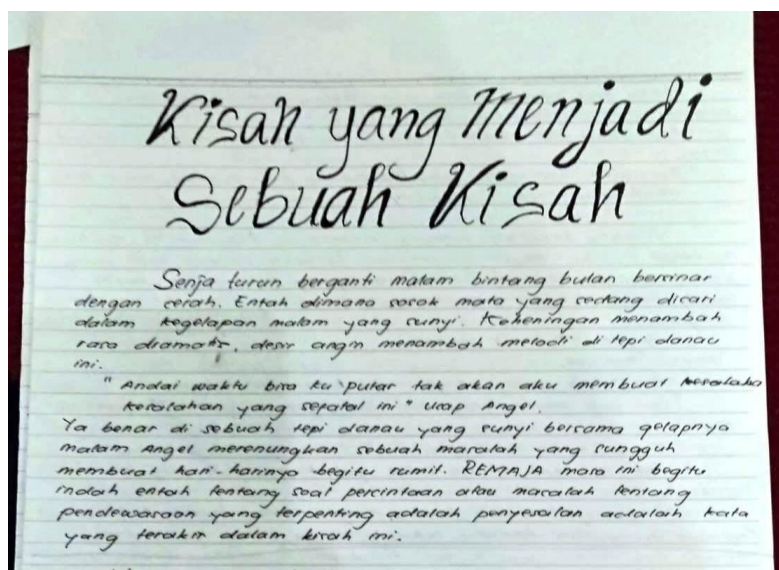 Kisah yang Menjadi
Sebuah Kisah
Senja turun berganti malam bintang bulan bersinar
dengan cerah. Entah dimana sosok mata yang sedang dicari
dalam kegelapan malam yang sunyi. Keheningan menambah
rasa dramatis, desir angin menambah melodi di tepi danau
ini.
"Andai waktu bisa ku putar tak akan aku membuat
kesalahan yang sefatal ini" ucap Angel.
Ya benar di sebuah tepi danau yang sunyi bersama gelapnya
malam Angel merenungkan sebuah masalah yang sungguh
membuat hari-harinya begitu rumit. REMAJA masa ini begitu
indah entah tentang soal percintaan atau masalah tentang
pendewasaan yang terpenting adalah penyesalan adalah kata
yang terakir dalam kisah ini.